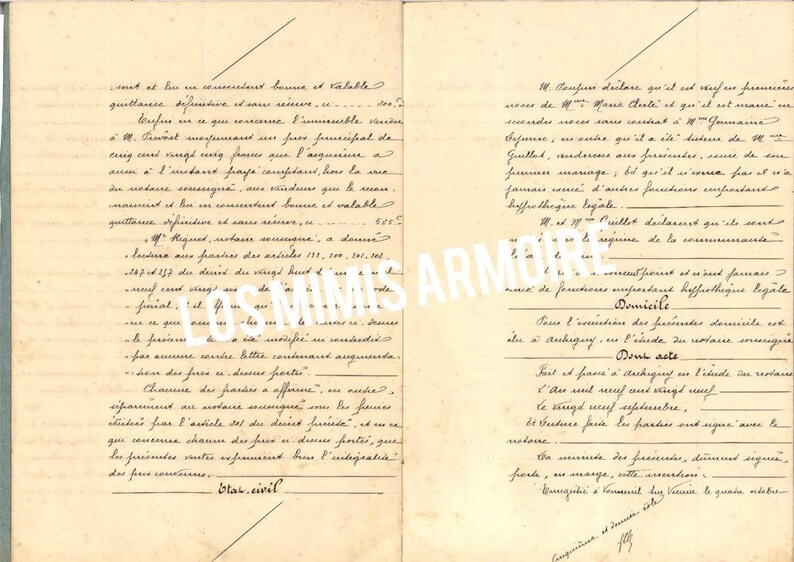 sont et lui en consentent bonne et valable
quittance définitive et sans réserve, ci ------ 300f
Enfin en ce que concerne l'immeuble vendu
à M. Prévost moyennant un prix principal de
cinq cent vingt cinq francs que l'acquéreur a
aussi à l'instant payé comptant, hors la vue
du notaire soussigné, aux vendeurs que le recon-
naissent et lui en consentent bonne et valable
quittance définitive et sans réserve, ci ------ 525f
Me notaire soussigné, a donné
lecture aux parties des articles 199, 200, 201, 202,
247 et 237 du décret du vingt huit
neuf cent vingt
pénal, il affirme
en ce que ci-dessus
le présent a été modifié ou contredit
par aucune contre lettre contenant augmenta-
tion des prix ci-dessus portés.
Chacune des parties a affirmé, en outre,
séparément au notaire soussigné sous les peines
édictées par l'article 201 du décret précité, et en ce
que concerne chacun des prix ci-dessus portés, que
les présentes ventes expriment bien l'intégralité
des prix convenus.
Etat-civil
M. Poupin déclare qu'il est veuf en premières
noces de Mme Marie Clerté et qu'il est marié en
secondes noces sans contrat à Mme Germaine
Lejeune, en outre qu'il a été tuteur de Mme
Guillot, venderesse aux présentes, issue de son
premier mariage; Et qu'il n'exerce pas et n'a
jamais exercé d'autres fonctions emportant
hypothèque légale.
M. et Mme Guillot déclarent qu'ils sont
régime de la communauté
point et n'ont jamais
de fonctions emportant hypothèque légale
Domicile
Pour l'exécution des présentes domicile est
élu à Archigny, en l'étude du notaire soussigné
Dont acte
Fait et passé à Archigny en l'étude du notaire
L'An mil neuf cent vingt neuf
Le vingt neuf septembre,
Et lecture faite les parties ont signé avec le
notaire.
La minute des présentes, dûment signée,
porte, en marge, cette mention:
Enregistré à Vouneuil sur Vienne le quatre octobre
Cinquième et dernier rôle
LOS MIMIS ARMOIRE